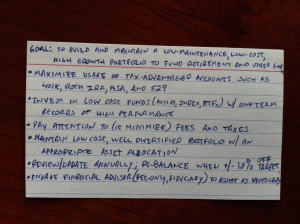 GOAL: TO BUILD AND MAINTAIN A LOW-MAINTENANCE, LOW-COST,
HIGH GROWTH PORTFOLIO TO FUND RETIREMENT AND OTHER
• MAXIMIZE USAGE OF TAX-ADVANTAGED ACCOUNTS SUCH AS
401K, ROTH IRA, HSA, AND 529
• INVEST IN LOW COST FUNDS (INDEX, ETFs) W/ LONG-TERM
RECORDS OF HIGH PERFORMANCE
• PAY ATTENTION TO (IE MINIMIZE) FEES AND TAXES
• MAINTAIN LOW COST, WELL DIVERSIFIED PORTFOLIO W/ AN
APPROPRIATE ASSET ALLOCATION
• REVIEW/UPDATE ANNUALLY; RE-BALANCE WHEN +/- 10% OFF TARGET
• ENGAGE FINANCIAL ADVISOR (FEE-ONLY, FIDUCIARY) TO ASSIST AS NECESSARY